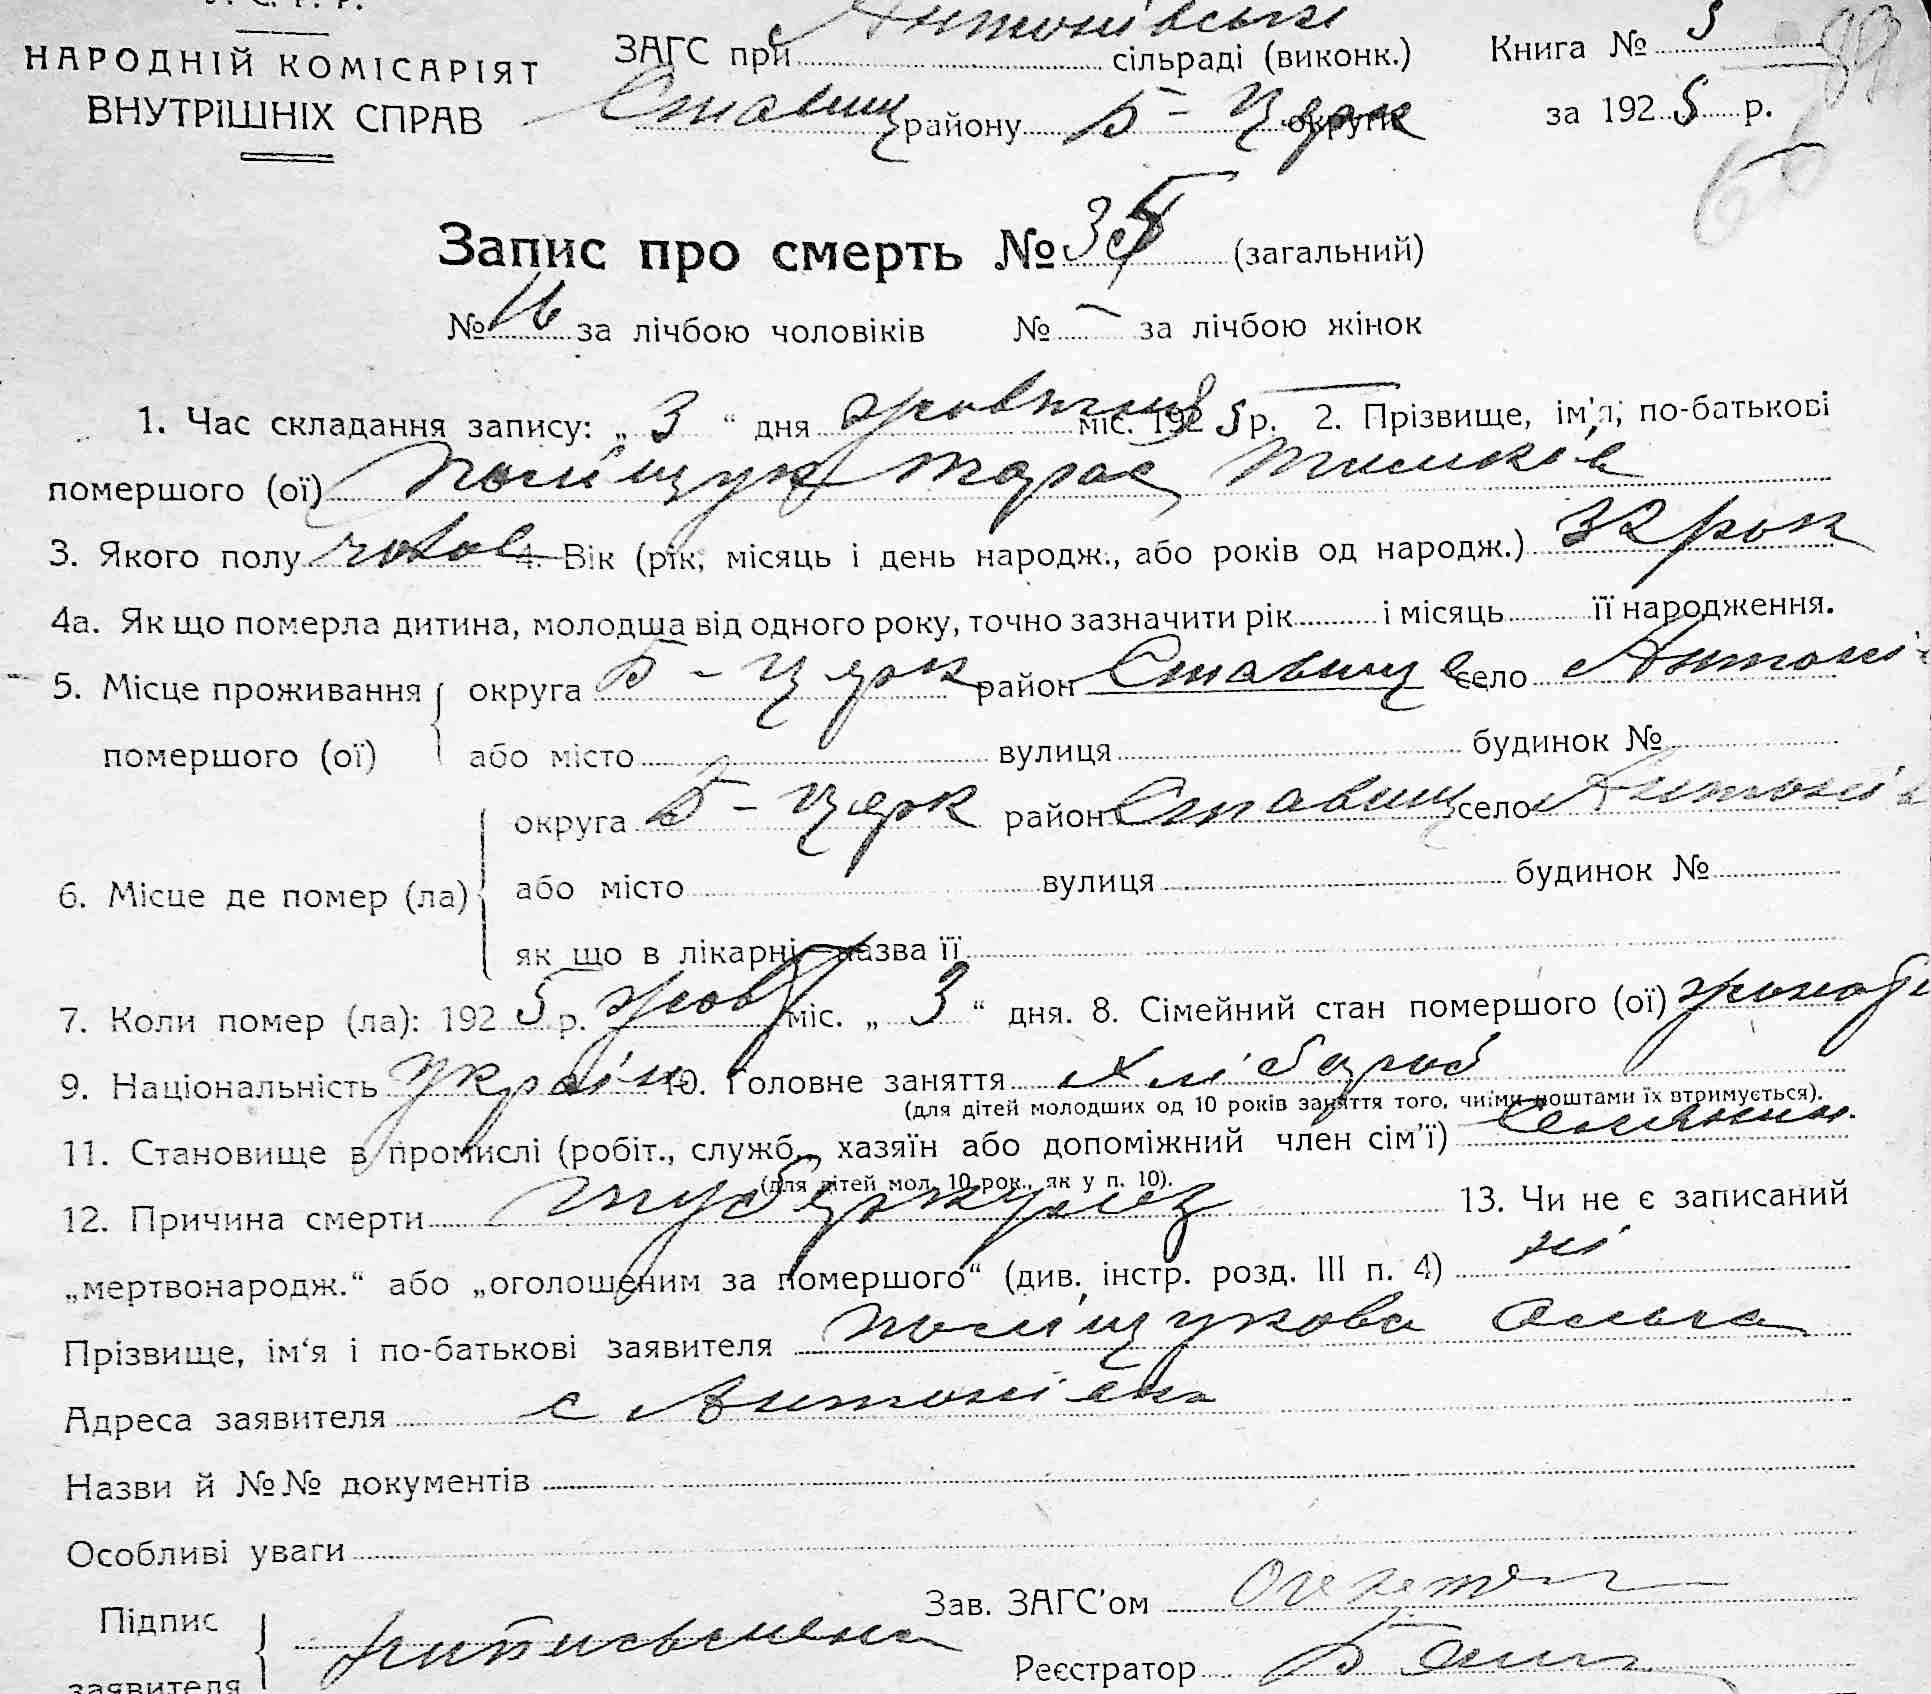 У. С. Р. Р.
НАРОДНІЙ КОМІСАРІЯТ
ВНУТРІШНІХ СПРАВ
ЗАГС при Антонівські сільраді (виконк.)
Ставищ району Б-Церк округи
Книга № 3
за 1925 р.
Запис про смерть № 35 (загальний)
№ 16 за лічбою чоловіків № — за лічбою жінок
1. Час складання запису: „3“ дня жовтня міс. 1925 р. 2. Прізвище, ім'я, по-батькові
помершого (ої) Поліщук Тарас Тимків
3. Якого полу чолов 4. Вік (рік, місяць і день народж., або років од народж.) 32 рок
4а. Як що померла дитина, молодша від одного року, точно зазначити рік і місяць її народження.
5. Місце проживання помершого (ої) округа Б-Церк район Ставищ село Антоні
або місто вулиця будинок №
6. Місце де помер (ла) округа Б-Церк район Ставищ село Антонів
або місто вулиця будинок №
як що в лікарні назва її
7. Коли помер (ла): 1925 р. жовт міс. „3“ дня. 8. Сімейний стан помершого (ої)
9. Національність Україн 10. Головне заняття хлібороб
(для дітей молодших од 10 років заняття того, чиїми коштами їх втримується).
11. Становище в промислі (робіт., служб., хазяїн або допоміжний член сім'ї) Селянин.
(для дітей мол. 10 рок., як у п. 10).
12. Причина смерти туберкульоз 13. Чи не є записаний
„мертвонародж.“ або „оголошеним за помершого“ (див. інстр. розд. III п. 4) ні
Прізвище, ім'я і по-батькові заявителя Поліщукова Ольга
Адреса заявителя с Антонівка
Назви й №№ документів
Особливі уваги
Зав. ЗАГС'ом
Підпис заявителя неписьмена
Реєстратор